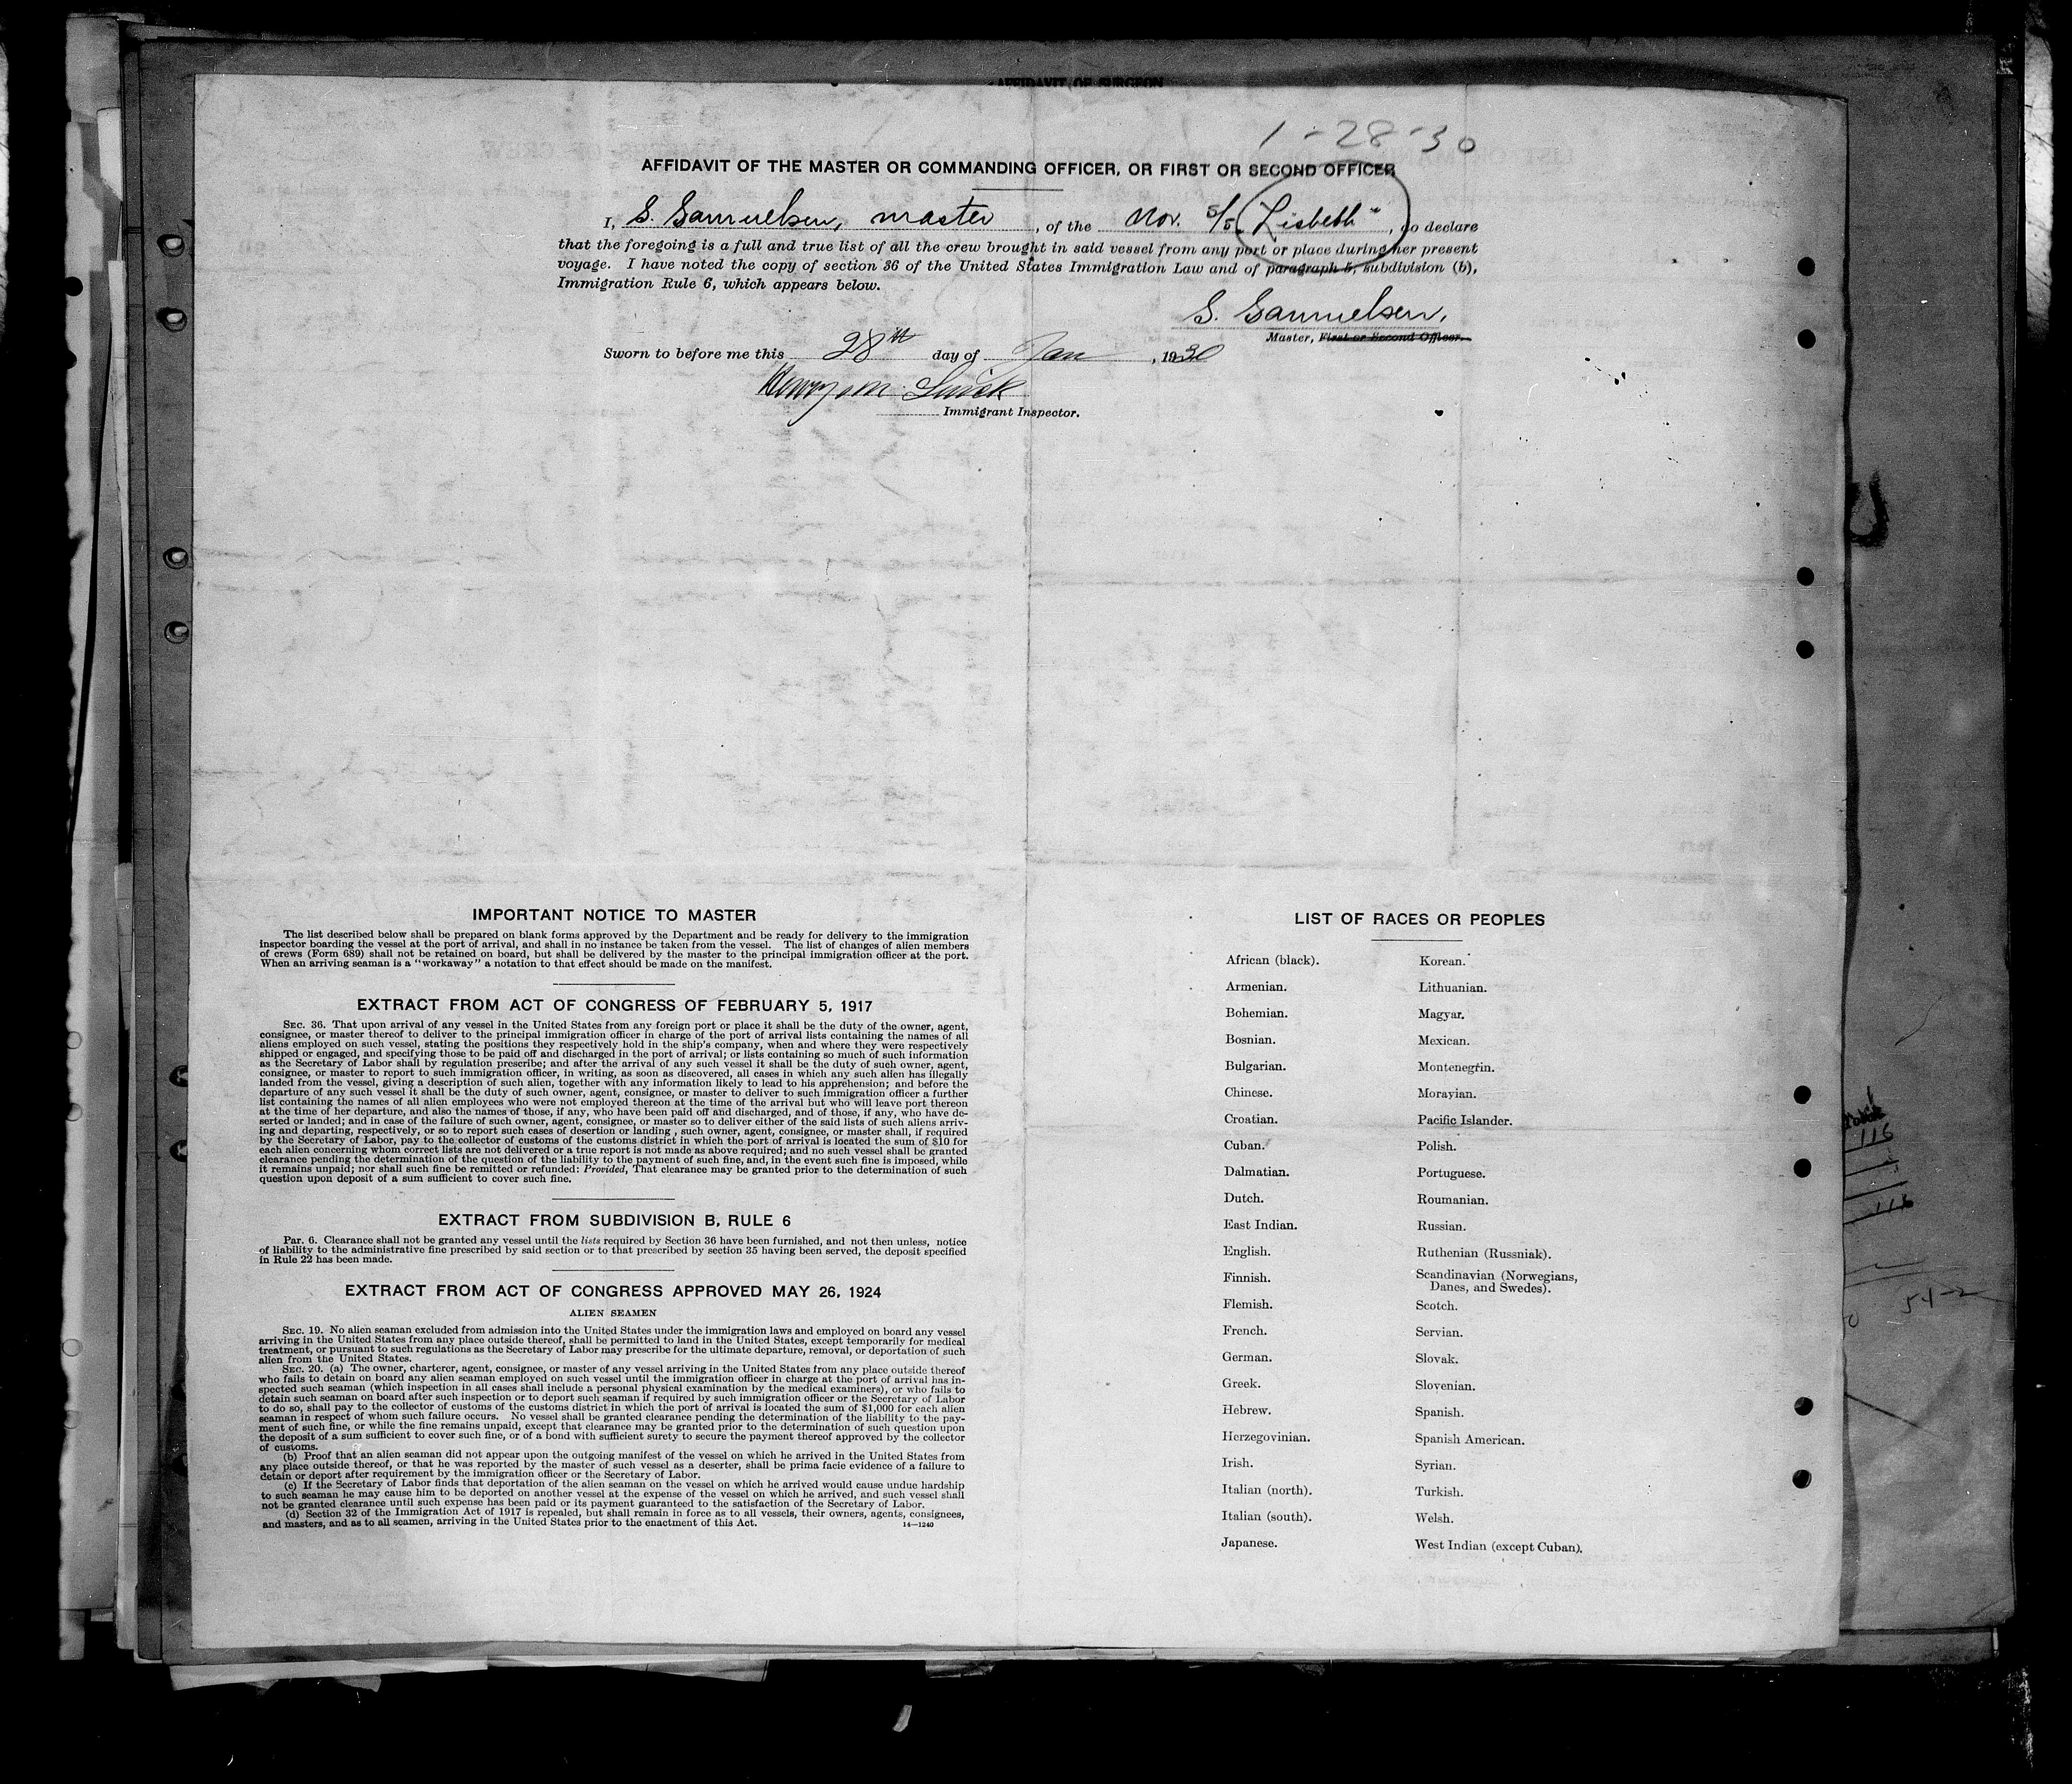 AFFIDAVIT OF SURGEON
1-28-30
AFFIDAVIT OF THE MASTER OR COMMANDING OFFICER, OR FIRST OR SECOND OFFICER
I, S. Samuelsen, master, of the Nor. S/S. "Lisbeth", do declare
that the foregoing is a full and true list of all the crew brought in said vessel from any port or place during her present
voyage. I have noted the copy of section 36 of the United States Immigration Law and of paragraph 5, subdivision (b),
Immigration Rule 6, which appears below.
S. Samuelsen,
Master, First or Second Officer.
Sworn to before me this 28th day of Jan, 1930
Henry M.
Immigrant Inspector.
IMPORTANT NOTICE TO MASTER
The list described below shall be prepared on blank forms approved by the Department and be ready for delivery to the immigration
inspector boarding the vessel at the port of arrival, and shall in no instance be taken from the vessel. The list of changes of alien members
of crews (Form 689) shall not be retained on board, but shall be delivered by the master to the principal immigration officer at the port.
When an arriving seaman is a "workaway" a notation to that effect should be made on the manifest.
EXTRACT FROM ACT OF CONGRESS OF FEBRUARY 5, 1917
SEC. 36. That upon arrival of any vessel in the United States from any foreign port or place it shall be the duty of the owner, agent,
consignee, or master thereof to deliver to the principal immigration officer in charge of the port of arrival lists containing the names of all
aliens employed on such vessel, stating the positions they respectively hold in the ship's company, when and where they were respectively
shipped or engaged, and specifying those to be paid off and discharged in the port of arrival; or lists containing so much of such information
as the Secretary of Labor shall by regulation prescribe; and after the arrival of any such vessel it shall be the duty of such owner, agent,
consignee, or master to report to such immigration officer, in writing, as soon as discovered, all cases in which any such alien has illegally
landed from the vessel, giving a description of such alien, together with any information likely to lead to his apprehension; and before the
departure of any such vessel it shall be the duty of such owner, agent, consignee, or master to deliver to such immigration officer a further
list containing the names of all alien employees who were not employed thereon at the time of the arrival but who will leave port thereon
at the time of her departure, and also the names of those, if any, who have been paid off and discharged, and of those, if any, who have de-
serted or landed; and in case of the failure of such owner, agent, consignee, or master so to deliver either of the said lists of such aliens arriv-
ing and departing, respectively, or so to report such cases of desertion or landing, such owner, agent, consignee, or master, shall, if required
by the Secretary of Labor, pay to the collector of customs of the customs district in which the port of arrival is located the sum of $10 for
each alien concerning whom correct lists are not delivered or a true report is not made as above required; and no such vessel shall be granted
clearance pending the determination of the question of the liability to the payment of such fine, and, in the event such fine is imposed, while
it remains unpaid; nor shall such fine be remitted or refunded: Provided, That clearance may be granted prior to the determination of such
question upon deposit of a sum sufficient to cover such fine.
EXTRACT FROM SUBDIVISION B, RULE 6
PAR. 6. Clearance shall not be granted any vessel until the lists required by Section 36 have been furnished, and not then unless, notice
of liability to the administrative fine prescribed by said section or to that prescribed by section 35 having been served, the deposit specified
in Rule 22 has been made.
EXTRACT FROM ACT OF CONGRESS APPROVED MAY 26, 1924
ALIEN SEAMEN
SEC. 19. No alien seaman excluded from admission into the United States under the immigration laws and employed on board any vessel
arriving in the United States from any place outside thereof, shall be permitted to land in the United States, except temporarily for medical
treatment, or pursuant to such regulations as the Secretary of Labor may prescribe for the ultimate departure, removal, or deportation of such
alien from the United States.
SEC. 20. (a) The owner, charterer, agent, consignee, or master of any vessel arriving in the United States from any place outside thereof
who fails to detain on board any alien seaman employed on such vessel until the immigration officer in charge at the port of arrival has in-
spected such seaman (which inspection in all cases shall include a personal physical examination by the medical examiners), or who fails to
detain such seaman on board after such inspection or to deport such seaman if required by such immigration officer or the Secretary of Labor
to do so, shall pay to the collector of customs of the customs district in which the port of arrival is located the sum of $1,000 for each alien
seaman in respect of whom such failure occurs. No vessel shall be granted clearance pending the determination of the liability to the pay-
ment of such fine, or while the fine remains unpaid, except that clearance may be granted prior to the determination of such question upon
the deposit of a sum sufficient to cover such fine, or of a bond with sufficient surety to secure the payment thereof approved by the collector
of customs.
(b) Proof that an alien seaman did not appear upon the outgoing manifest of the vessel on which he arrived in the United States from
any place outside thereof, or that he was reported by the master of such vessel as a deserter, shall be prima facie evidence of a failure to
detain or deport after requirement by the immigration officer or the Secretary of Labor.
(c) If the Secretary of Labor finds that deportation of the alien seaman on the vessel on which he arrived would cause undue hardship
to such seaman he may cause him to be deported on another vessel at the expense of the vessel on which he arrived, and such vessel shall
not be granted clearance until such expense has been paid or its payment guaranteed to the satisfaction of the Secretary of Labor.
(d) Section 32 of the Immigration Act of 1917 is repealed, but shall remain in force as to all vessels, their owners, agents, consignees,
and masters, and as to all seamen, arriving in the United States prior to the enactment of this Act.
14—1240
LIST OF RACES OR PEOPLES
African (black).
Armenian.
Bohemian.
Bosnian.
Bulgarian.
Chinese.
Croatian.
Cuban.
Dalmatian.
Dutch.
East Indian.
English.
Finnish.
Flemish.
French.
German.
Greek.
Hebrew.
Herzegovinian.
Irish.
Italian (north).
Italian (south).
Japanese.
Korean.
Lithuanian.
Magyar.
Mexican.
Montenegrin.
Moravian.
Pacific Islander.
Polish.
Portuguese.
Roumanian.
Russian.
Ruthenian (Russniak).
Scandinavian (Norwegians,
Danes, and Swedes).
Scotch.
Servian.
Slovak.
Slovenian.
Spanish.
Spanish American.
Syrian.
Turkish.
Welsh.
West Indian (except Cuban).
116
116